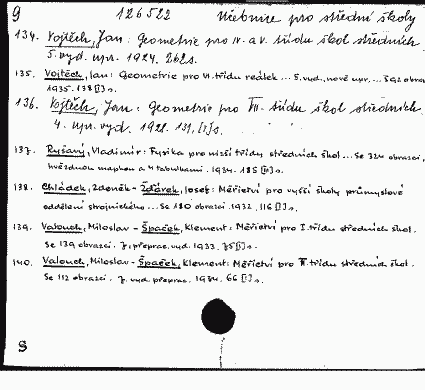 9 126522 Učebnice pro střední školy
134. Vojtěch, Jan: Geometrie pro IV. a V. třídu škol středních.
5. vyd. upr. 1924. 262 s.
135. Vojtěch, Jan: Geometrie pro VI. třídu reálek ... 5. vyd., nově upr. ... S 92 obrazci
1935. 138 [I] s.
136. Vojtěch, Jan: Geometrie pro VII. třídu škol středních.
4. upr. vyd. 1921. 131, [I] s.
137. Ryšavý, Vladimír: Fysika pro nižší třídy středních škol ... Se 324 obrazci,
hvězdnou mapkou a 4 tabulkami. 1934. 185 [II] s.
138. Chládek, Zdeněk - Žďárek, Josef: Měřictví pro vyšší školy průmyslové
oddělení strojnického ... Se 180 obrazci. 1932. 116 [I] s.
139. Valouch, Miloslav - Špaček, Klement: Měřictví pro I. třídu středních škol.
Se 139 obrazci. 7. přeprac. vyd. 1933. 75 [I] s.
140. Valouch, Miloslav - Špaček, Klement: Měřictví pro II. třídu středních škol.
Se 112 obrazci. 7. vyd. přeprac. 1934. 66 [I] s.
S